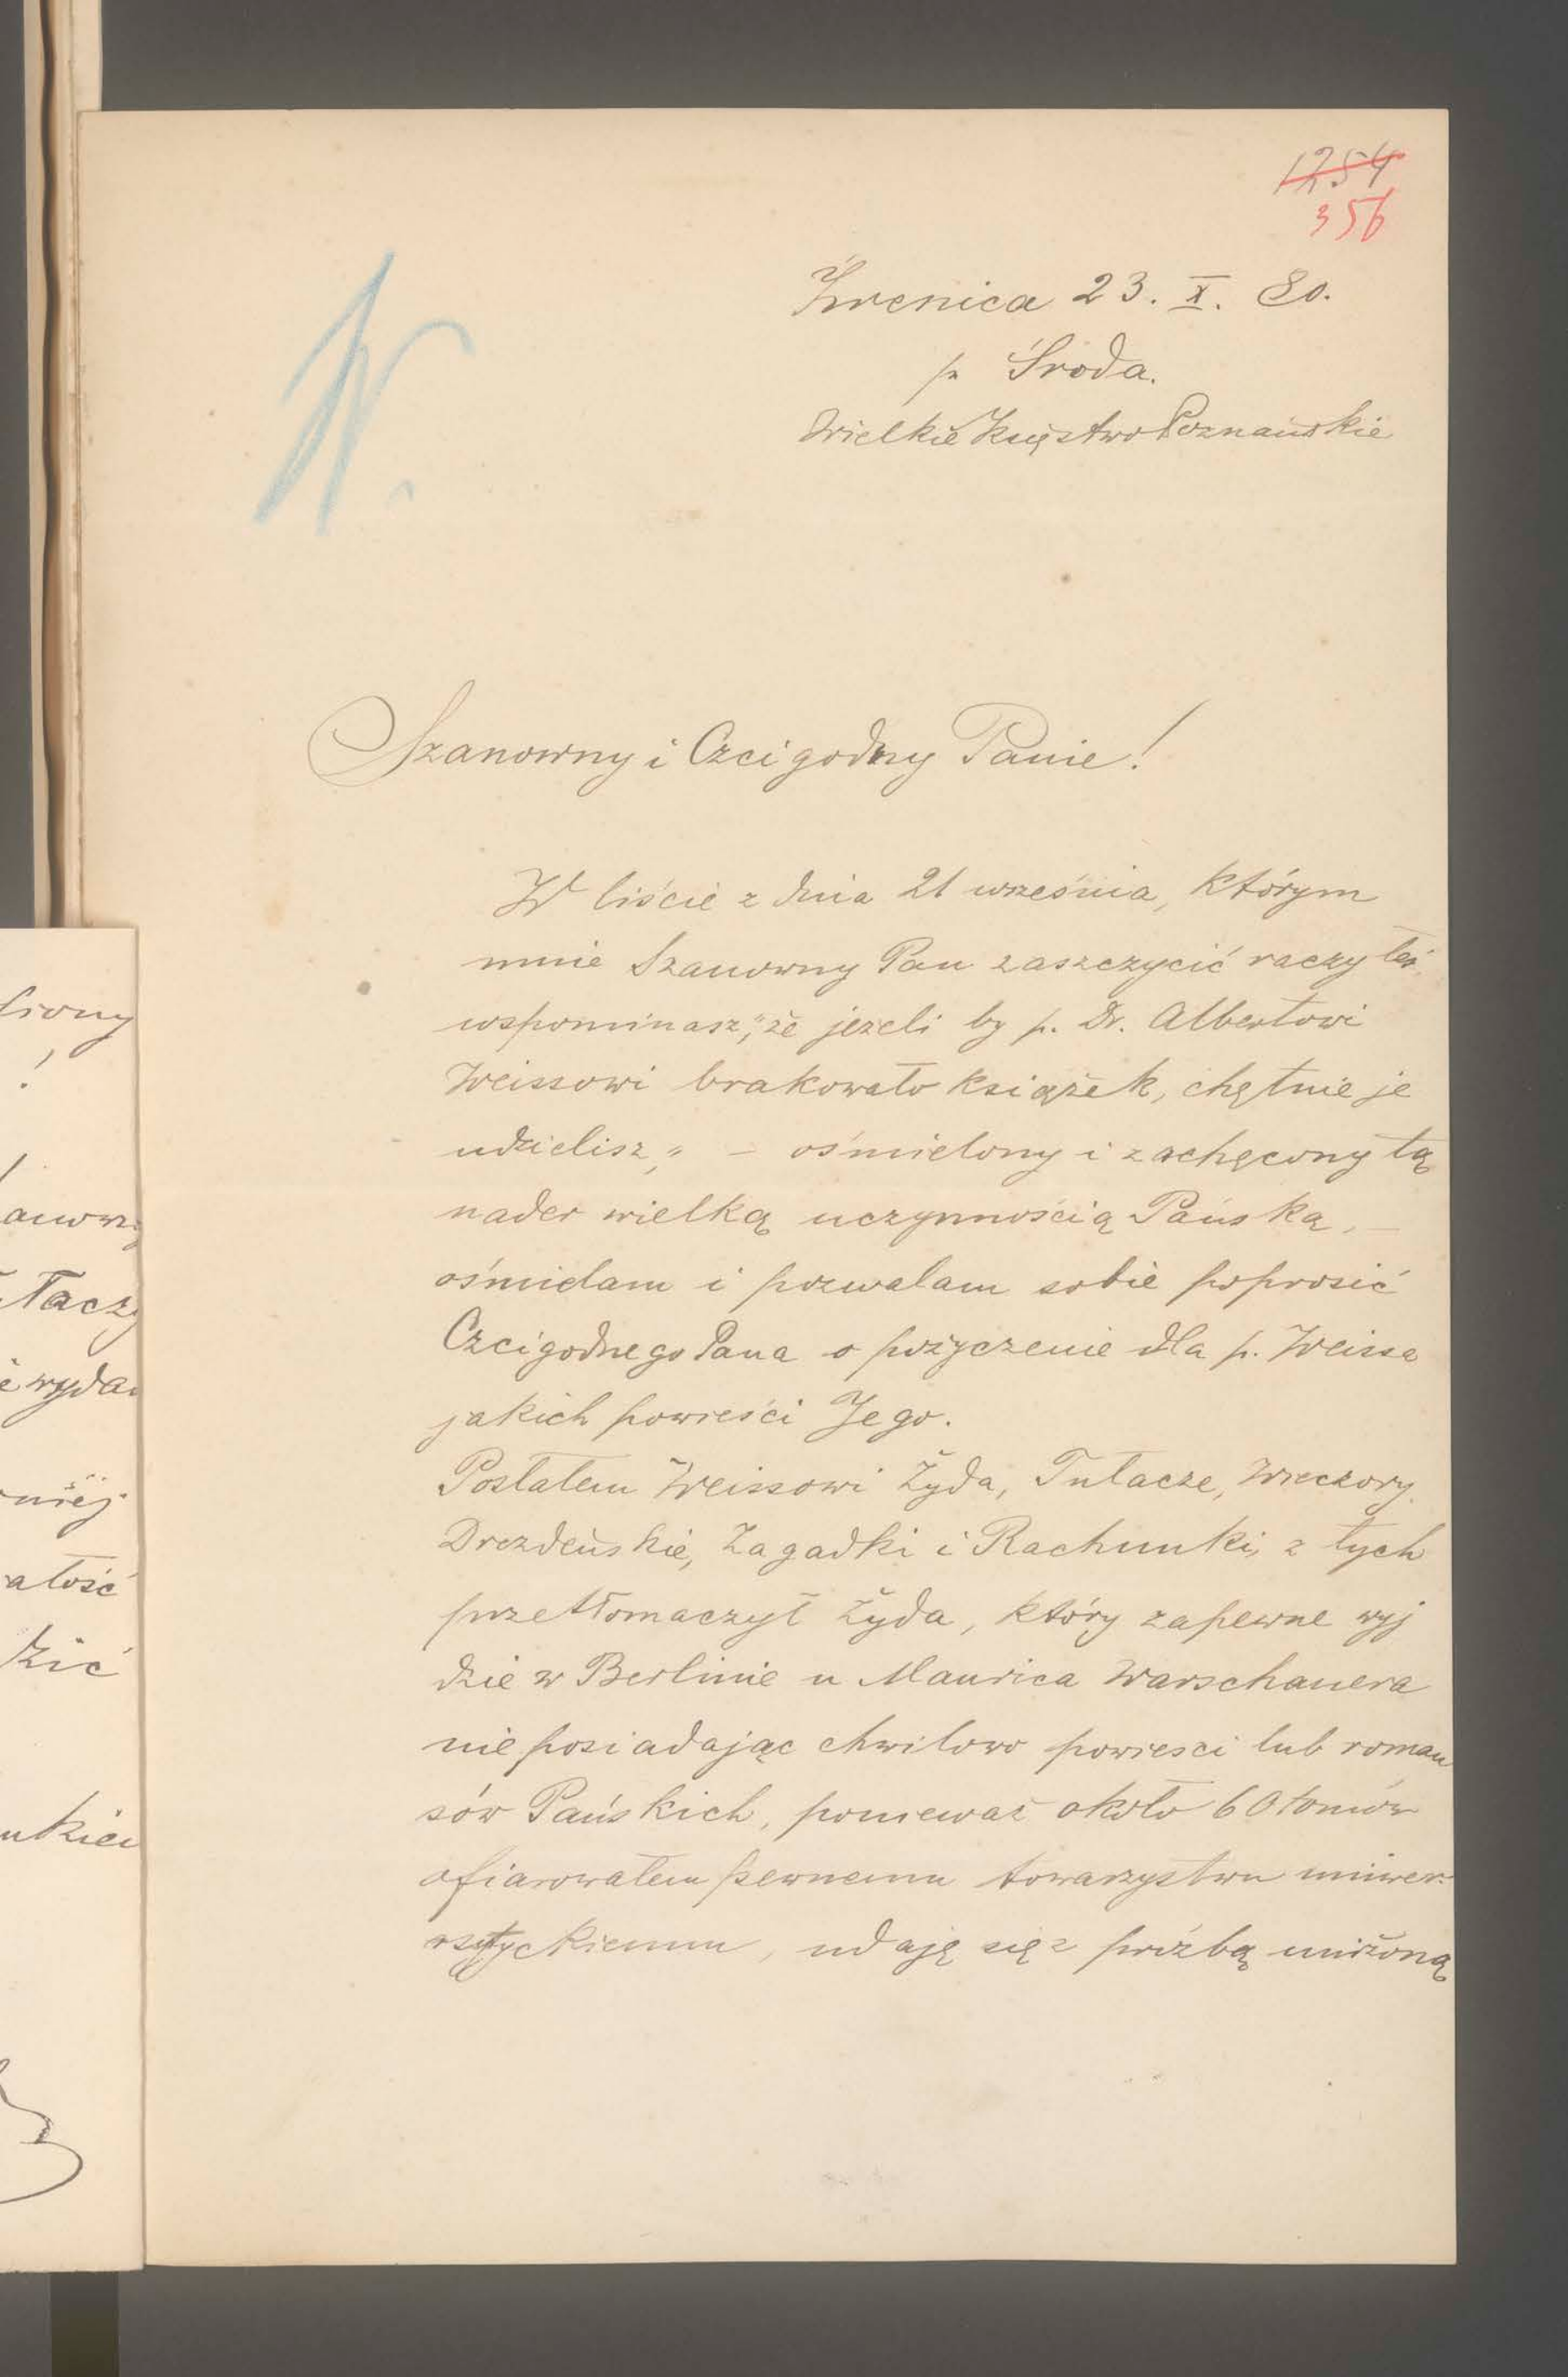 1254
356
Żrenica 23. X. 80.
p. Środa.
Wielkie Księstwo Poznańskie
Szanowny i Czcigodny Panie!
W liście z dnia 21 września, którym
mnie Szanowny Pan zaszczycić raczyłeś,
wspominasz, „że jeżeli by p. Dr. Albertowi
Weissowi brakowało książek, chętnie je
udzielisz," – ośmielony i zachęcony tą
nader wielką uczynnością Pańską, –
ośmielam i pozwalam sobie poprosić
Czcigodnego Pana o pożyczenie dla p. Weissa
jakich powieści Jego.
Posłałem Weissowi Żyda, Tułacze, Wieczory
Drezdeńskie, Zagadki i Rachunki, z tych
przetłomaczył Żyda, który zapewne wyj
dzie w Berlinie u Maurica Warschauera
nie posiadając chwilowo powieści lub roman
sów Pańskich, ponieważ około 60 tomów
ofiarowałem pewnemu towarzystwu uniwer-
sytyckiemu, udaję się z proźbą uniżoną
!
łaczy
niej
ałość